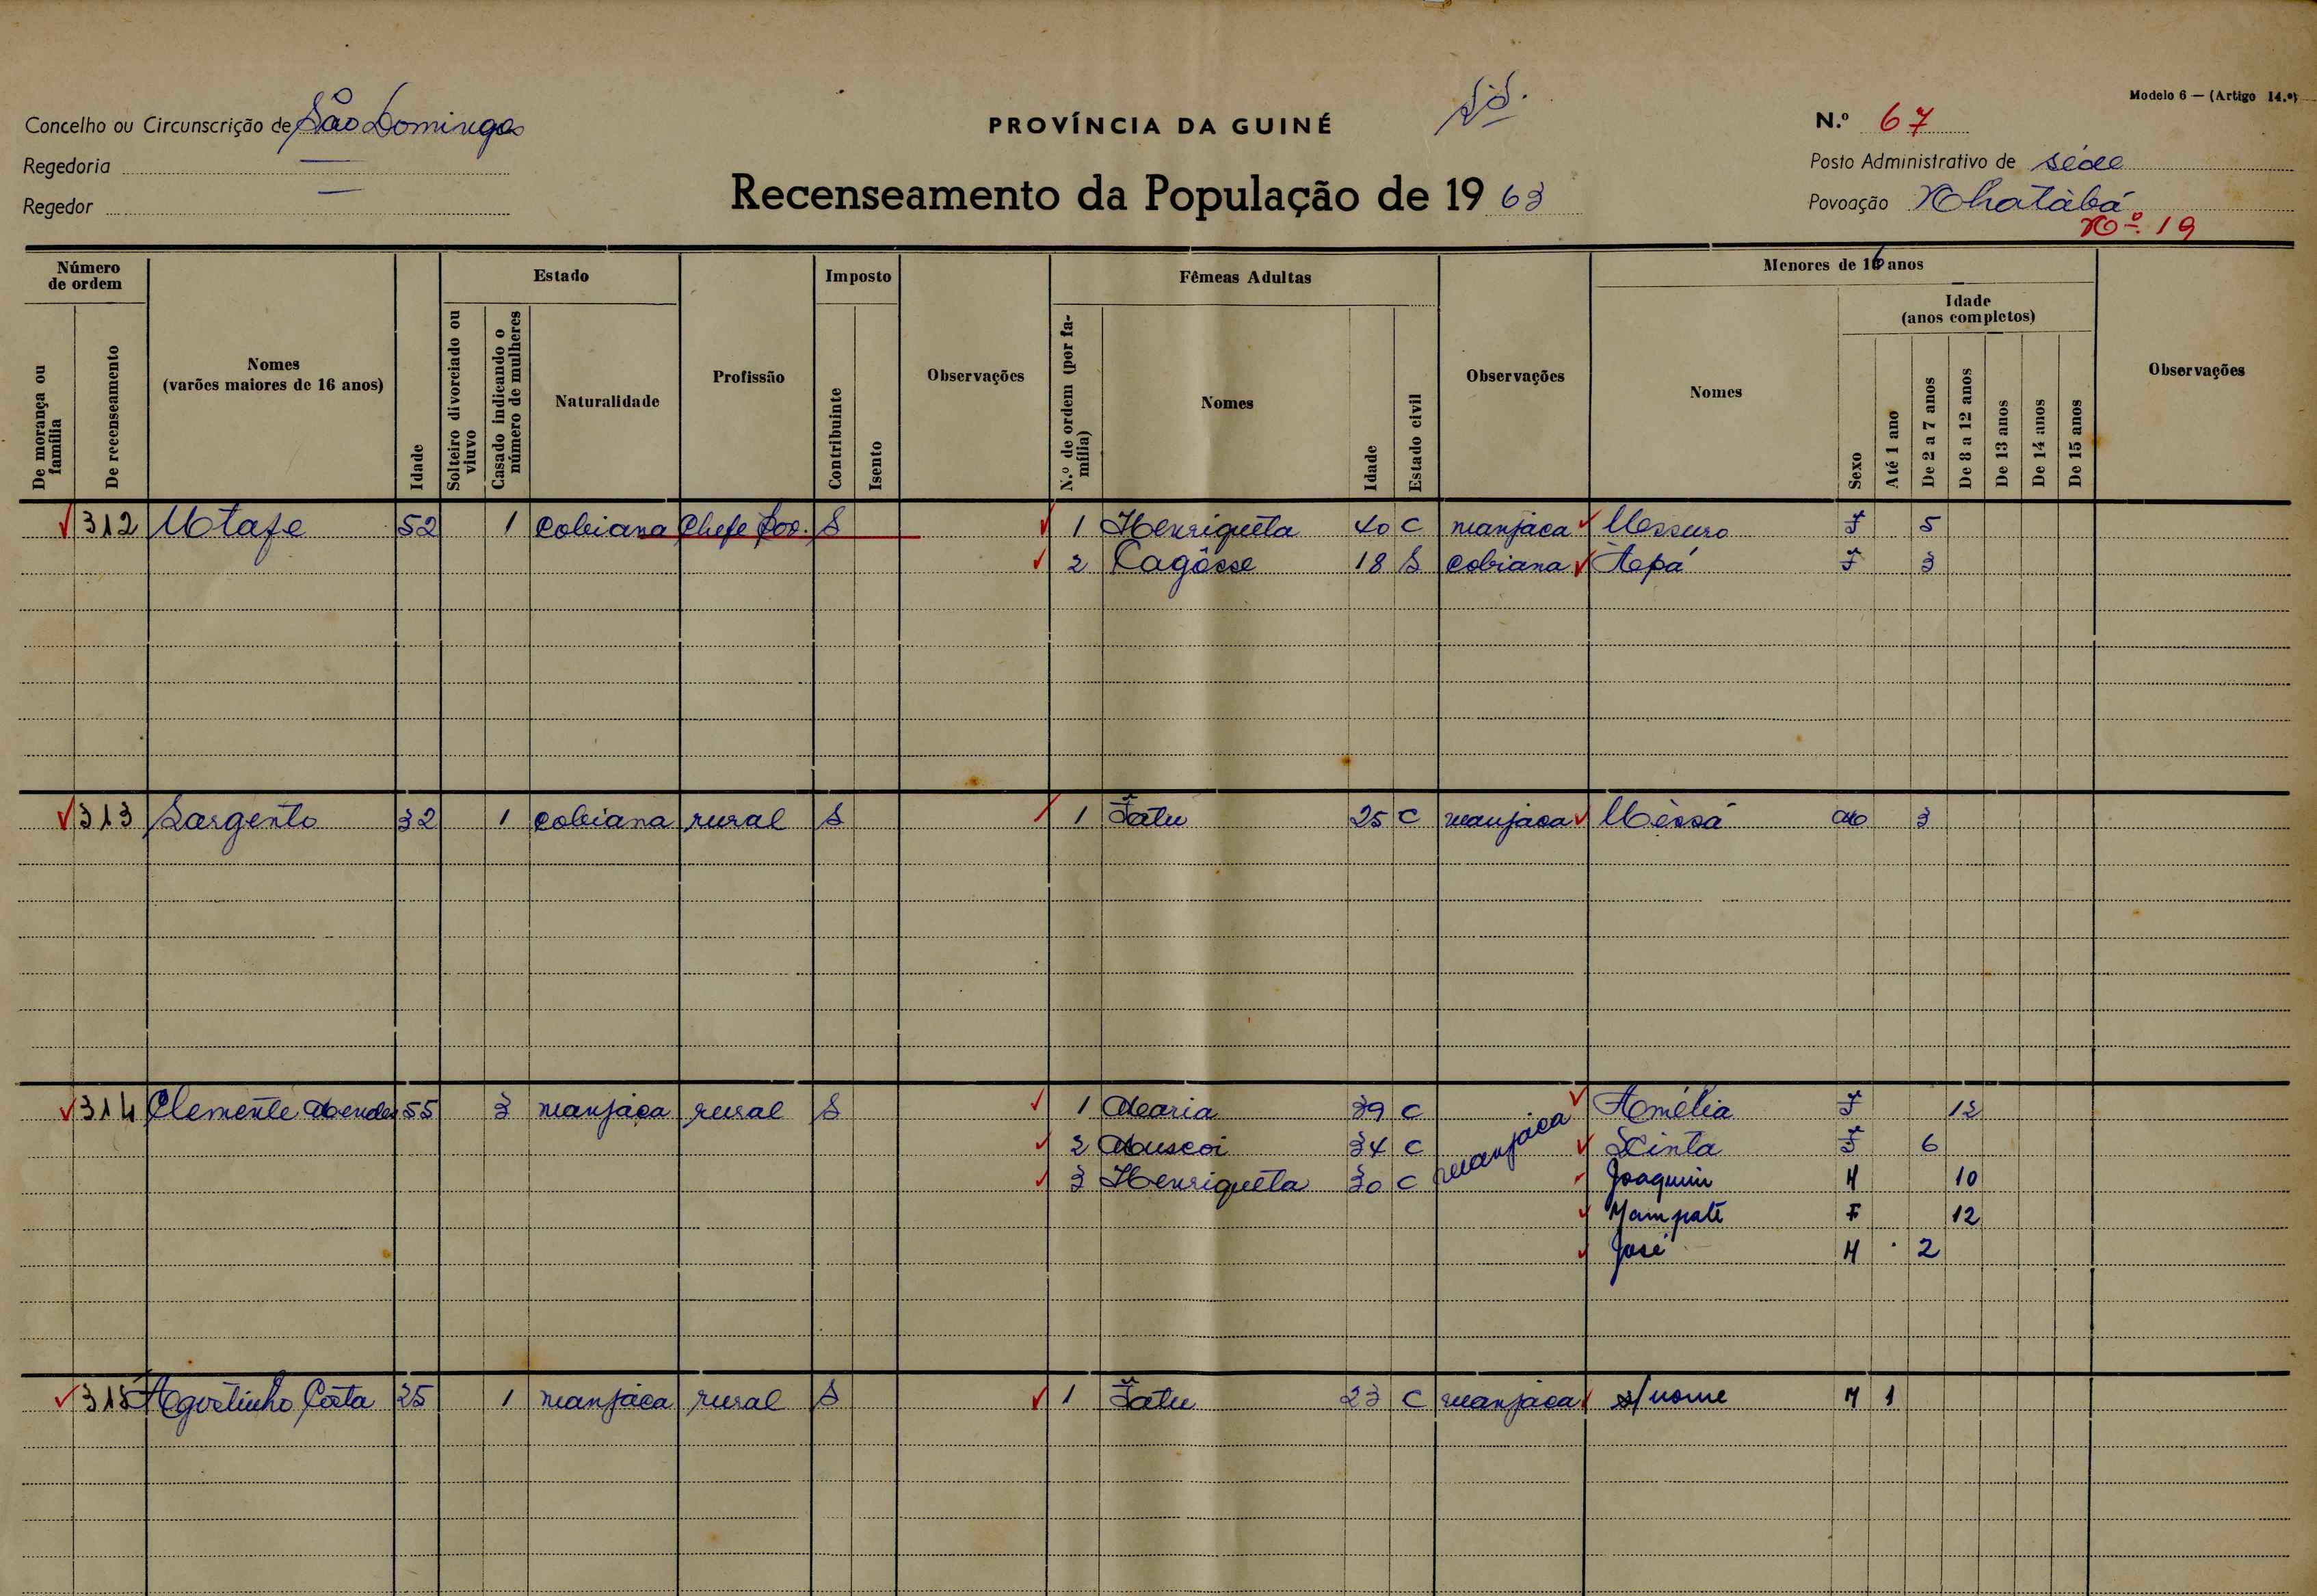 Modelo 6 — (Artigo 14.º)
Concelho ou Circunscrição de São Domingos
PROVÍNCIA DA GUINÉ
N.º 67
Regedoria —
Posto Administrativo de séde
Regedor —
Recenseamento da População de 1963
Povoação Nhatàbá
Nº 19
Número de ordem
Estado
Imposto
Fêmeas Adultas
Menores de 16 anos
Idade
(anos completos)
De morança ou família
De recenseamento
Nomes
(varões maiores de 16 anos)
Idade
Solteiro divorciado ou viuvo
Casado indicando o número de mulheres
Naturalidade
Profissão
Contribuinte
Isento
Observações
N.º de ordem (por família)
Nomes
Idade
Estado civil
Observações
Nomes
Sexo
Até 1 ano
De 2 a 7 anos
De 8 a 12 anos
De 13 anos
De 14 anos
De 15 anos
Observações
312 Utafe 52 1 cobiana Chefe Pov. S 1 Henriqueta 40 C manjaca Ussuro F 5
2 Cagósse 18 S cobiana Apá F 3
313 Sargento 32 1 cobiana rural S 1 Fatu 25 C manjaca Uèssá M 3
314 Clemente Mendes 55 3 manjaca rural S 1 Maria 39 C manjaca Amélia F 12
2 Muscoi 34 C Sinta F 6
3 Henriqueta 30 C Joaquim M 10
Mampate F 12
José M 2
315 Agostinho Costa 25 1 manjaca rural S 1 Fatu 23 C manjaca s/nome M 1